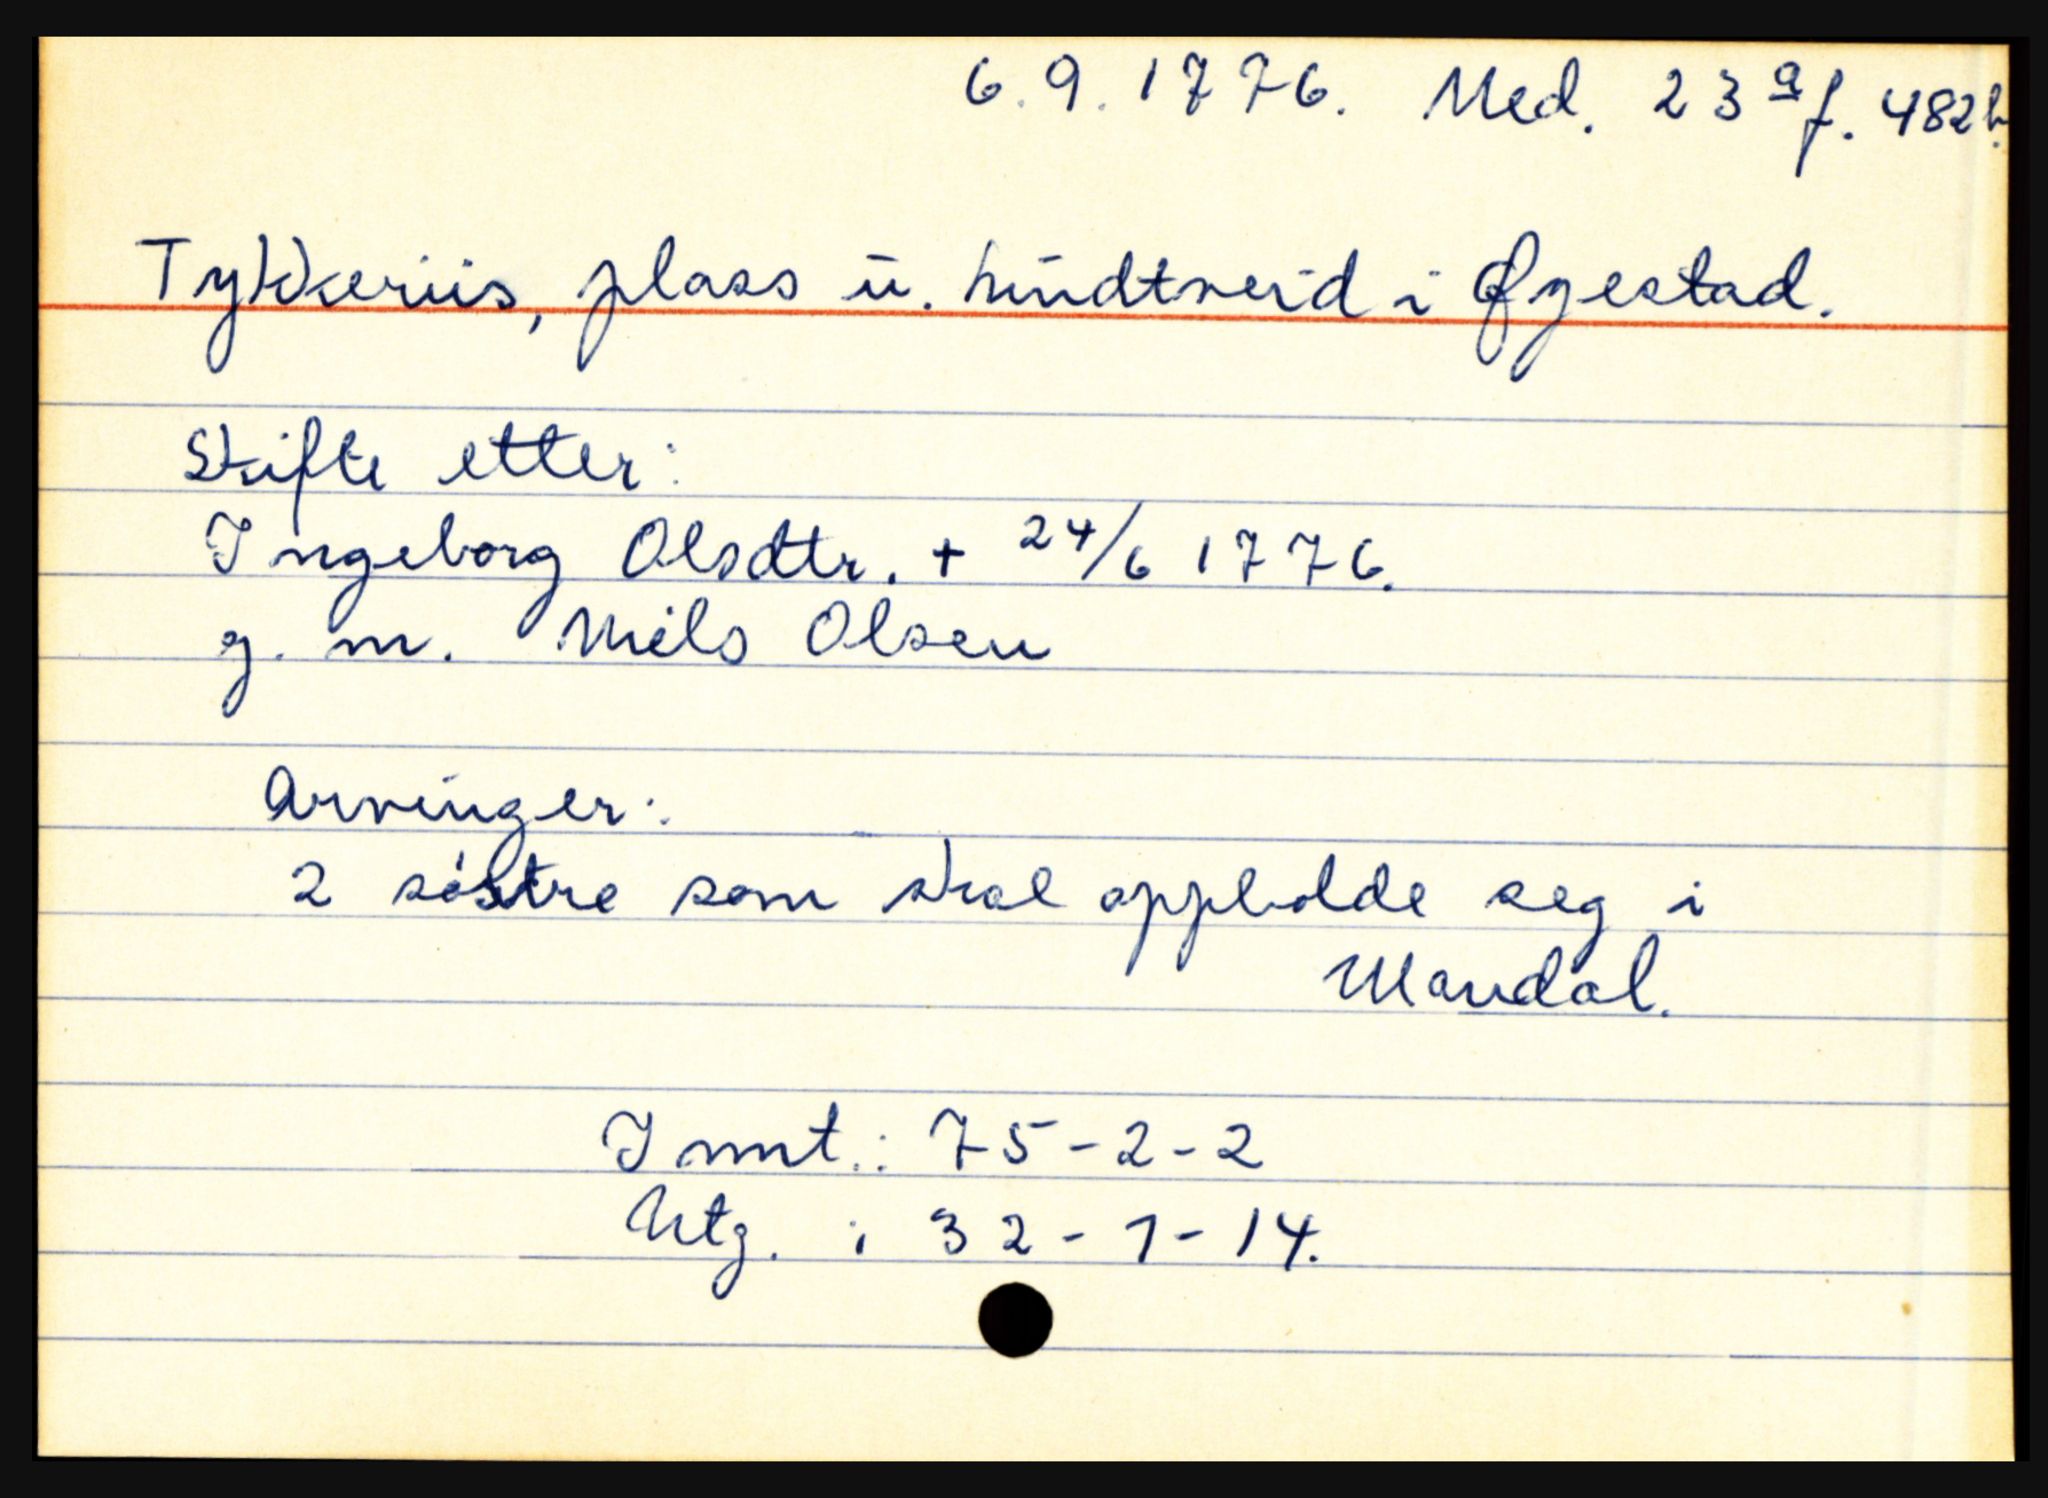 6.9.1776. Ned. 23a f. 482b.
Tykkeriis, plass u. Lundtveid i Øyestad.
Skifte etter:
Ingeborg Olsdtr. + 24/6 1776.
g. m. Niels Olsen
Arvinger:
2 søstre som skal oppholde seg i
Mandal.
Innt.: 75-2-2
Utg. : 32-1-14.